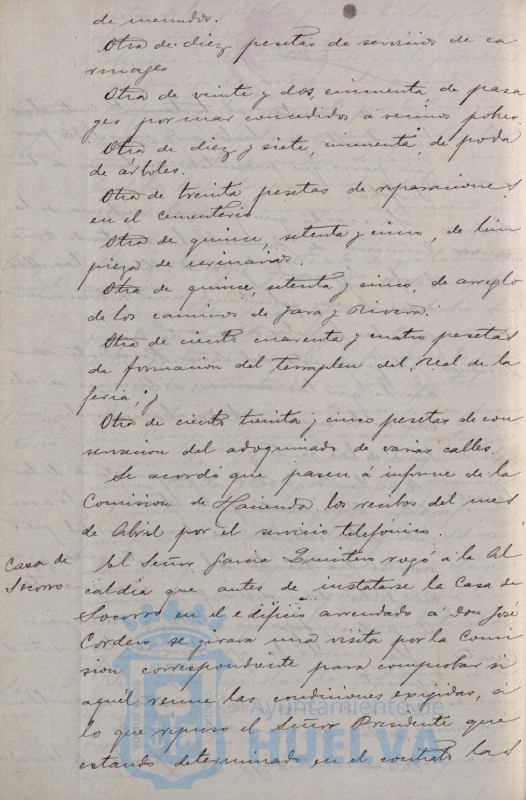 de menudos.
Otra de diez pesetas de servicios de ca
rruages
Otra de veinte y dos, cincuenta, de pasa
ges por mar concedidos á vecinos pobres
Otra de diez y siete, cincuenta, de poda
de árboles.
Otra de treinta pesetas de reparaciones
en el cementerio.
Otra de quince, setenta y cinco, de lim
pieza de urinarios.
Otra de quince, setenta y cinco, de arreglo
de los caminos de Jara y Rivera.
Otra de ciento cuarenta y cuatro pesetas
de formacion del terraplen del Real de la
feria; y
Otra de ciento treinta y cinco pesetas de con
servacion del adoquinado de varias calles.
Se acordó que pasen á informe de la
Comision de Hacienda los recibos del mes
de Abril por el servicio telefónico.
Casa de
Socorro
El Señor Garcia Quintero rogó á la Al
caldia que antes de instalarse la Casa de
Socorro en el edificio arrendado á Don José
Cordero se girara una visita por la Comi
sion correspondiente para comprobar si
aquél reune las condiciones exigidas, á
lo que repuso el Señor Presidente que
estando determinado en el contrato las
Ayuntamiento de
HUELVA